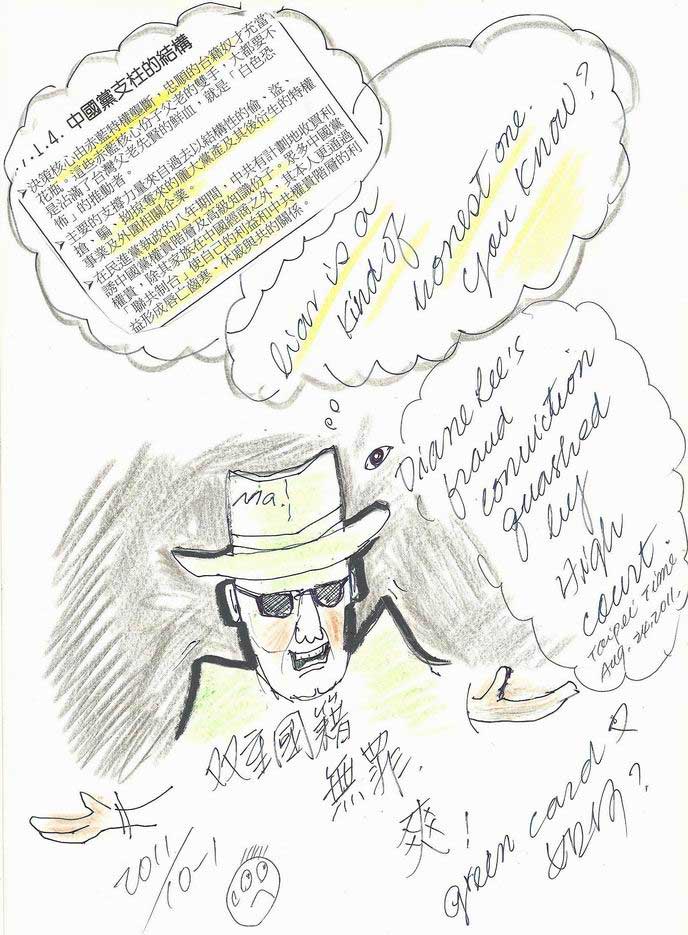 7.1.4. 中國黨支柱的結構
➤決策核心由赤藍特權壟斷，忠順的台籍奴才充當
花瓶。這些赤藍核心份子父老的雙手，大都要不
是沾滿了台灣父老先賢的鮮血，就是「白色恐
怖」的推動者。
➤主要的支撐力量來自過去以結構性的偷、盜、
搶、騙、拗掠奪來的龐大黨產及其後衍生的特權
事業及外圍相關企業。
➤在民進黨執政的八年期間，中共有計劃地收買利
誘中國黨權貴階層及高級知識份子。及多中國黨
權貴，除其家族在中國經商之外，其本人更通過
「聯共制台」使自己的利益和中共權貴階層的利
益形成唇亡齒寒、休戚與共的關係。
liar is a
kind of
honest one.
you know?
Diane Lee's
fraud
conviction
quashed
by
High
court.
Taipei Time
Aug. 24. 2011.
Ma!
双重國籍
無罪.
爽!
green card 又
如何?
2011/10-1